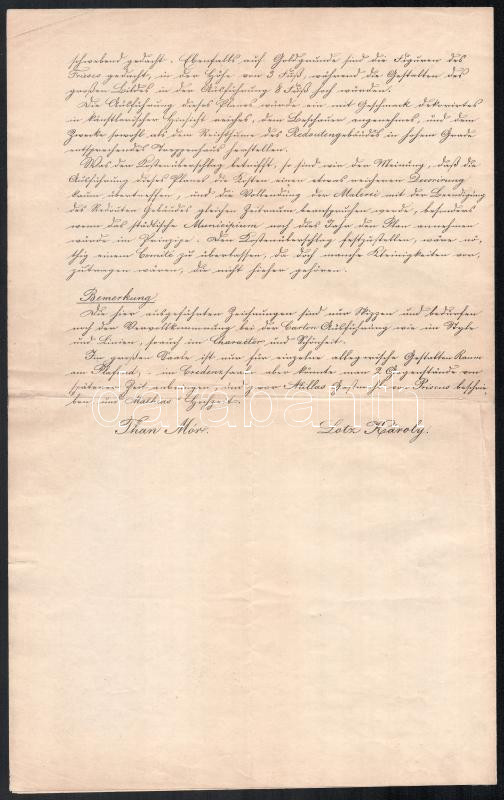 schwebend gedacht. Ebenfalls auf Goldgrunde sind die Figuren des
Frieses gedacht, in der Höhe von 3 Fuß, während die Gestalten des
großen Bildes in der Ausführung 8 Fuß hoch würden.
Die Ausführung dieses Planes würde ein mit Geschmack dekorirtes
in künstlerischer Hinsicht reiches, dem Beschauer angenehmes, und dem
Zwecke sowohl als dem Reichthume des Redoutengebäudes in hohem Grade
entsprechendes Treppenhaus herstellen.
Was den Kostenüberschlag betrifft, so sind wir der Meinung, daß die
Ausführung dieses Planes die Kosten einer etwas reicheren Decorirung
kaum übertreffen, und die Vollendung der Malerei mit der Beendigung
des Redouten Gebäudes gleichen Zeitraum beanspruchen werde, besonders
wenn das städtische Municipium noch dies Jahr den Plan annehmen
würde im Prinzipe. Den Kostenüberschlag festzustellen, wäre nö-
thig einem Comité zu überlassen, da doch manche Kleinigkeiten vor-
zutragen wären, die nicht hieher gehören.
Bemerkung.
Die hier ausgeführten Zeichnungen sind nur Skizzen und bedürfen
noch der Vervollkommnung bei der Carton Ausführung wie im Style
und Linien, sowie im Charactër und Schönheit.
Im großen Saale ist nur für einzelne allegorische Gestalten Raum
am Plafond; im Credenzsaale aber könnte man 2 Gegenstände aus
späterer Zeit anbringen, Attilas Gastmahl von Priscus beschrie-
ben und Mathias Hochzeit.
Than Mór. Lotz Károly.
darabanth